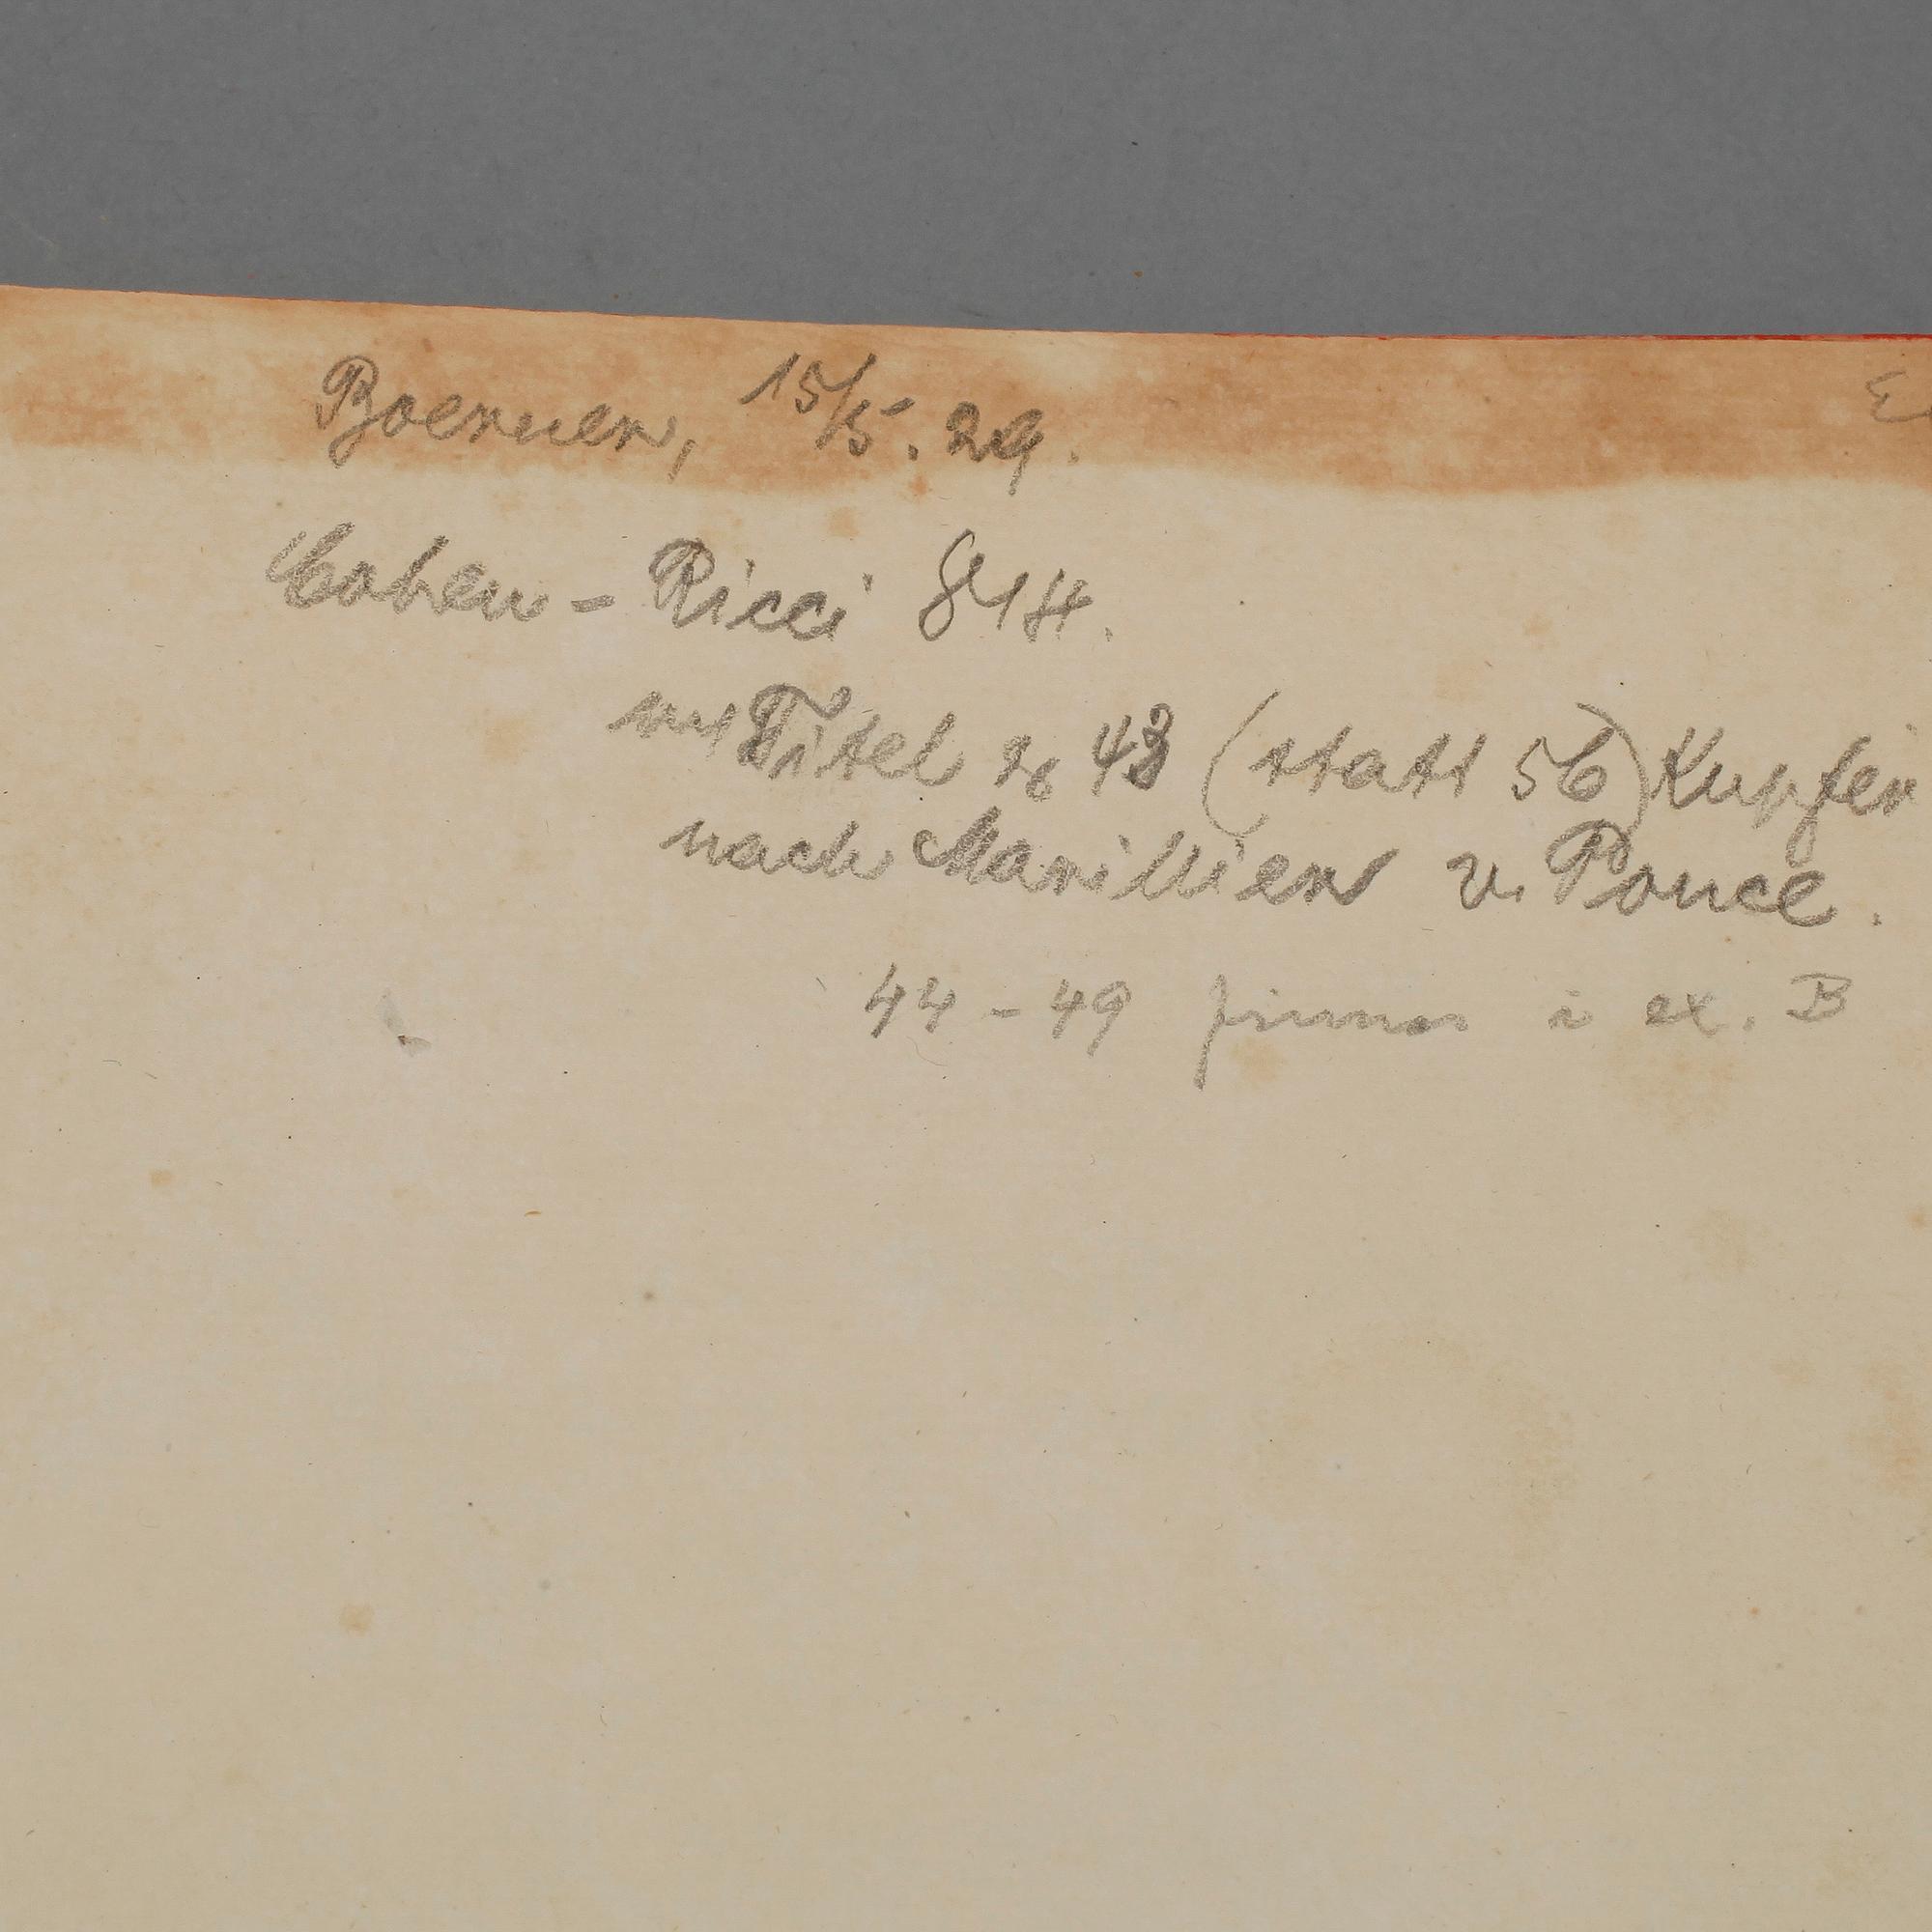 Boerner, 15/5. 29.
Cohen - Ricci 814.
Titel & 43 (statt 56) Kupfer
nach Marillier u. Ponce.
44 - 49 finnas i ex. B